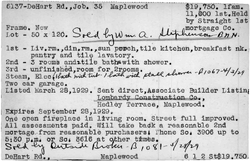 6137-DeHart Rd., Job. 35 Maplewood $19,750. 1fam.
11,800 1st. Held
Frame, New by Straight
lot - 50 x 120. Sold by Wm A. Stephenson Mortgage Co.
1st - liv.rm, din.rm, sun porch, tile kitchen, breakfast nk.
pantry and tile lavatory.
2nd - 3 rooms and tile bath with shower.
3rd - unfinished, room for 2 rooms.
Steam,
Two car garage.
Listed March 28, 1929. Sent direct, Associate Builder listing
Lombardy Construction Co.,
Hedley Terrace, Maplewood.
Expires September 28, 1929.
One open fireplace in living room. Street full improved.
All assessments paid. Will take back a reasonable 2nd
mortgage from reasonable purchasers; Phone So. 3906 up to
5:30 p.m. or So. 8616 at other times.
Sold by Outside Broker - B 1081 - 4/23/29
DeHart Rd., Maplewood